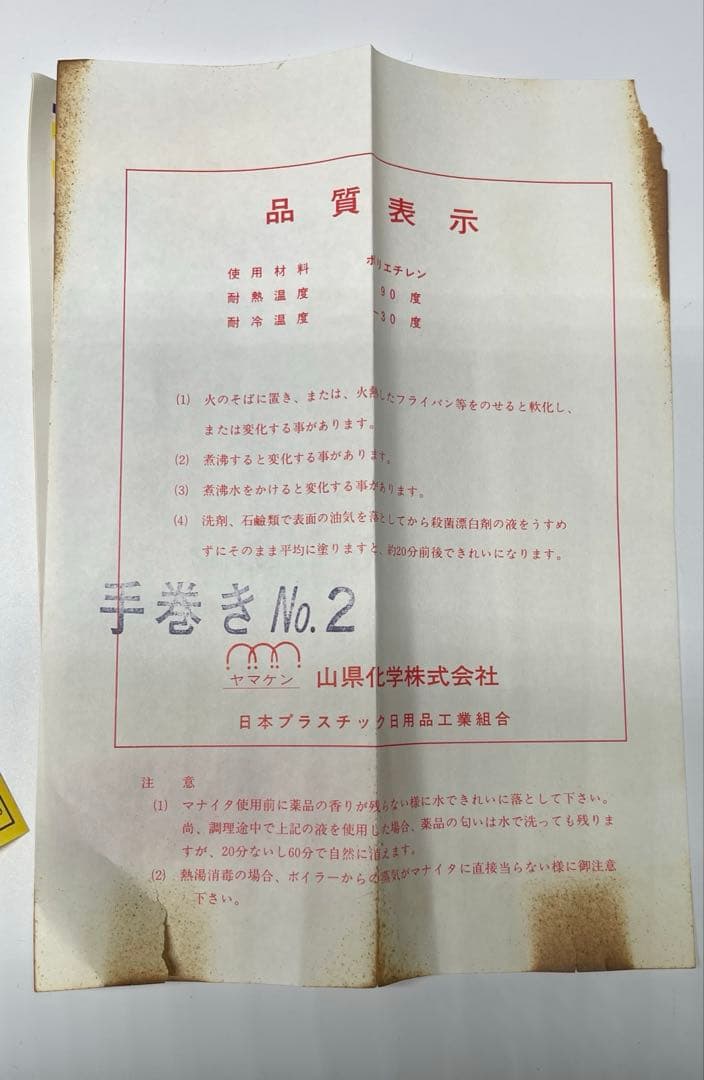 品質表示
使用材料 ポリエチレン
耐熱温度 90度
耐冷温度 -30度
(1) 火のそばに置き、または、火熱したフライパン等をのせると軟化し、
または変化する事があります。
(2) 煮沸すると変化する事があります。
(3) 煮沸水をかけると変化する事があります。
(4) 洗剤、石鹸類で表面の油気を落としてから殺菌漂白剤の液をうすめ
ずにそのまま平均に塗りますと、約20分前後できれいになります。
手巻き No.2
ヤマケン 山県化学株式会社
日本プラスチック日用品工業組合
注意
(1) マナイタ使用前に薬品の香りが残らない様に水できれいに落として下さい。
尚、調理途中で上記の液を使用した場合、薬品の匂いは水で洗っても残りま
すが、20分ないし60分で自然に消えます。
(2) 熱湯消毒の場合、ボイラーからの蒸気がマナイタに直接当らない様に御注意
下さい。